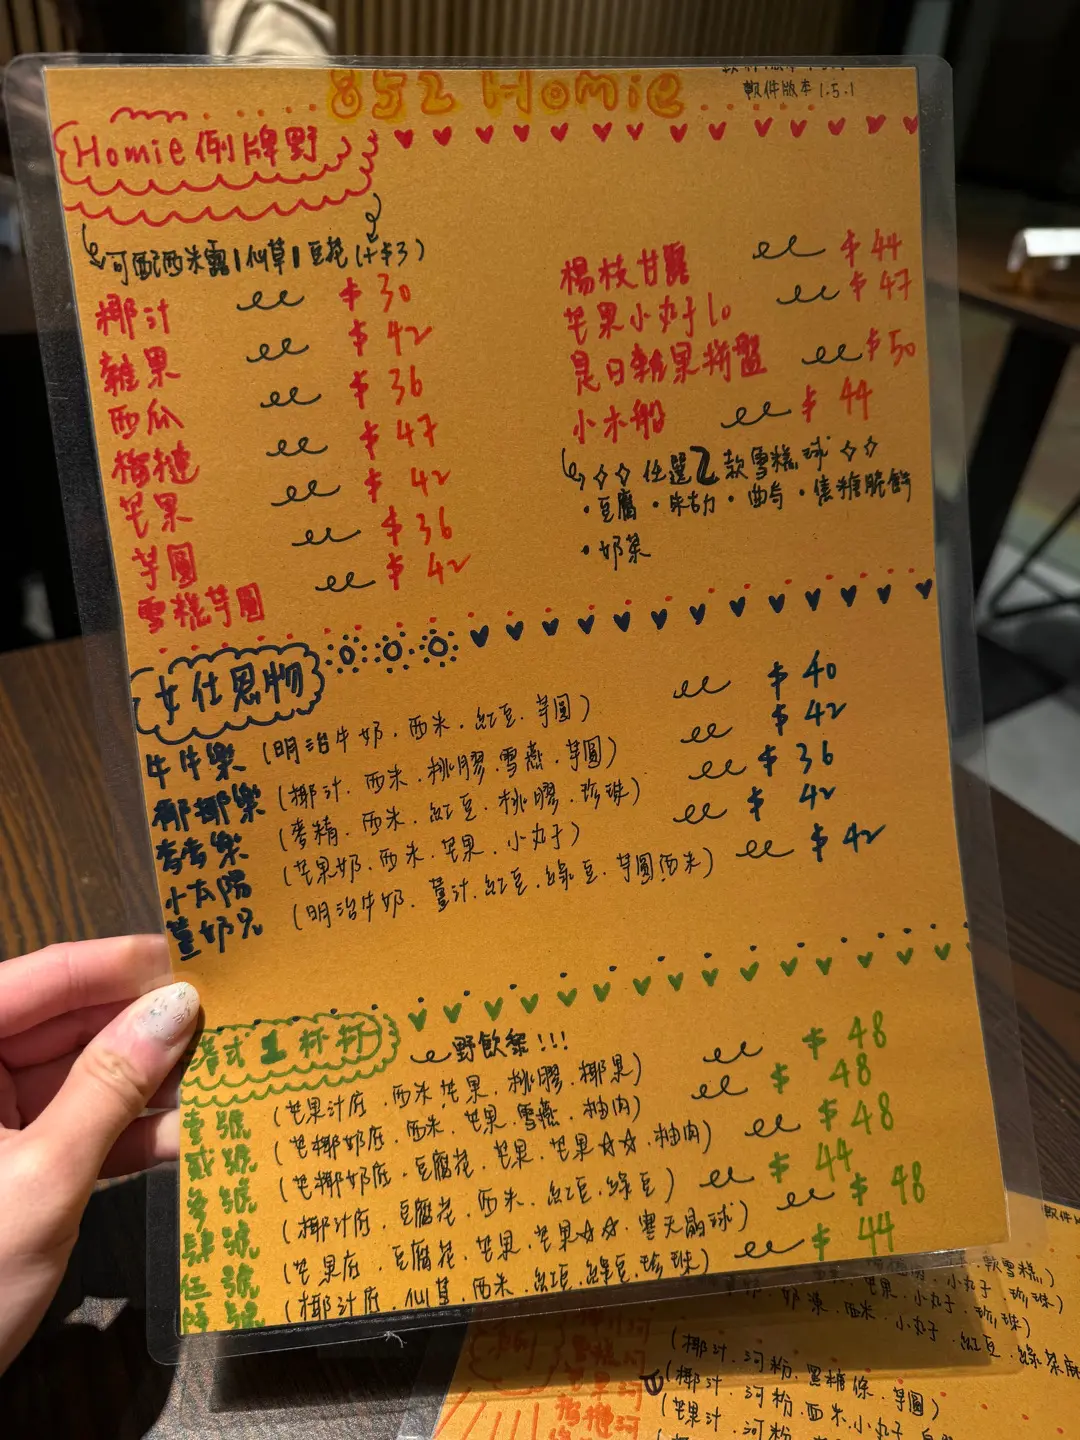 852 Homie
軟件版本1.5.1
Homie例牌野
可配西米露|仙草|豆花(+$3)
椰汁 $30
雜果 $42
西瓜 $36
榴槤 $47
芒果 $42
芋圓 $36
雪糕芋圓 $42
楊枝甘露 $44
芒果小丸子10 $47
是日雜果拼盤 $50
小木船 $44
任選2款雪糕球
·豆腐·朱古力·曲奇·焦糖脆餅
·奶茶
女仕恩物
牛牛樂 (明治牛奶.西米.紅豆.芋圓) $40
椰椰樂 (椰汁.西米.桃膠.雪燕.芋圓) $42
麥麥樂 (麥精.西米.紅豆.桃膠.珍珠) $36
小太陽 (芒果奶.西米.芒果.小丸子) $42
薑奶兄 (明治牛奶.薑汁.紅豆.綠豆.芋圓.西米) $42
港式1杯杯
野飲架!!!
壹號 (芒果汁底.西米.芒果.桃膠.椰果) $48
貳號 (芒椰奶底.西米.芒果.雪燕.柚肉) $48
參號 (芒椰奶底.豆腐花.芒果.芒果☆☆.柚肉) $48
肆號 (椰汁底.豆腐花.西米.紅豆.綠豆) $44
伍號 (芒果底.豆腐花.芒果.芒果☆☆.寒天晶球) $48
陸號 (椰汁底.仙草.西米.紅豆.綠豆.珍珠) $44
軟件
小丸子.軟雪糕)
芒果.小丸子.珍珠)
西米.小丸子.紅豆.綠茶
(椰汁.河粉.黑糖條.芋圓)
(椰汁.河粉.西米.小丸子
(芒果汁.河粉